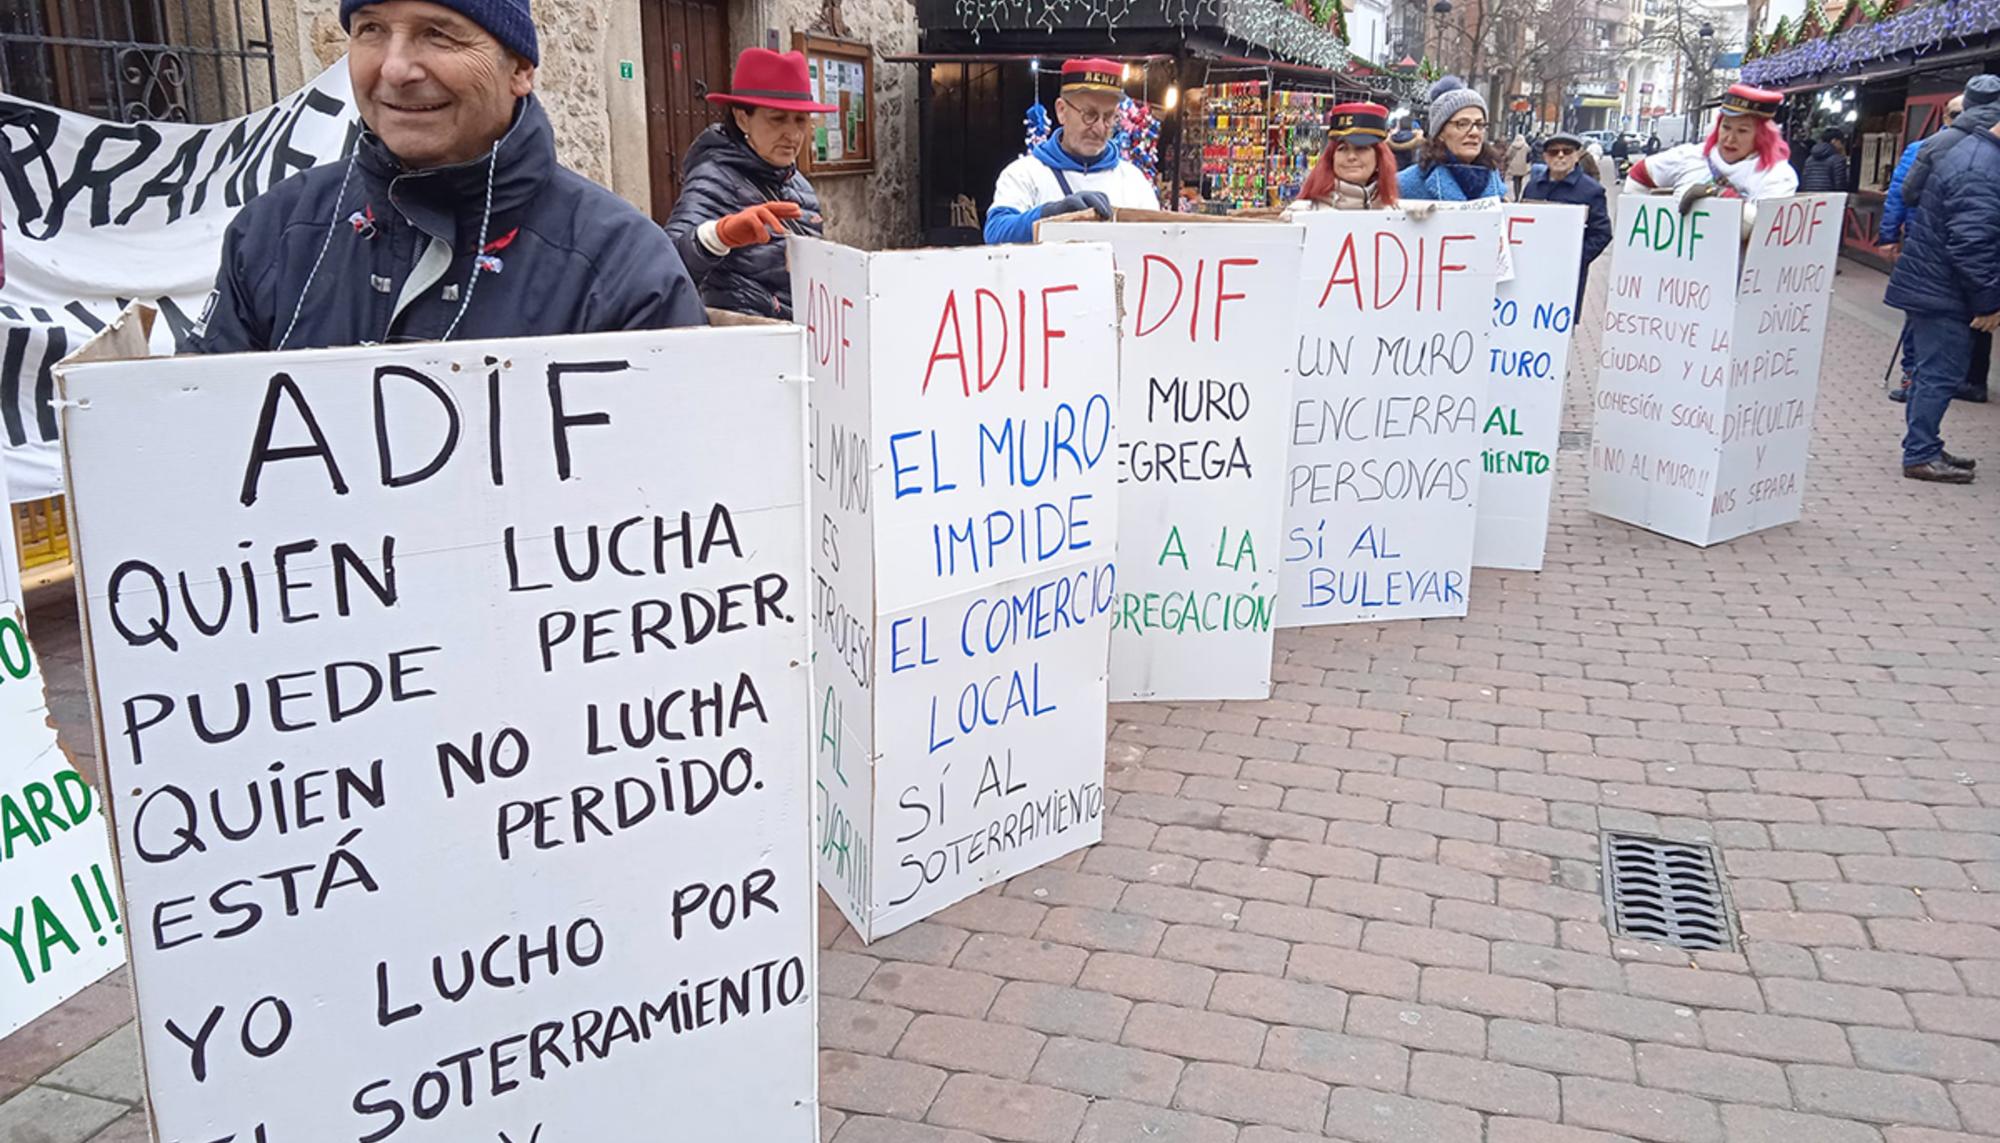 ADIF
QUIEN LUCHA
PUEDE PERDER.
QUIEN NO LUCHA
ESTÁ PERDIDO.
YO LUCHO POR
EL SOTERRAMIENTO
Y
YA!!
ADIF
EL MURO
ES
AL
ADIF
EL MURO
IMPIDE
EL COMERCIO
LOCAL
SÍ AL
SOTERRAMIENTO.
DIF
MURO
EGREGA
A LA
GREGACIÓN
ADIF
UN MURO
ENCIERRA
PERSONAS.
SÍ AL
BULEVAR
F
RO NO
TURO.
AL
MIENTO.
ADIF
UN MURO
DESTRUYE LA
CIUDAD Y LA
COHESIÓN SOCIAL.
¡¡NO AL MURO!!
ADIF
EL MURO
DIVIDE,
IMPIDE,
DIFICULTA
Y
NOS SEPARA.